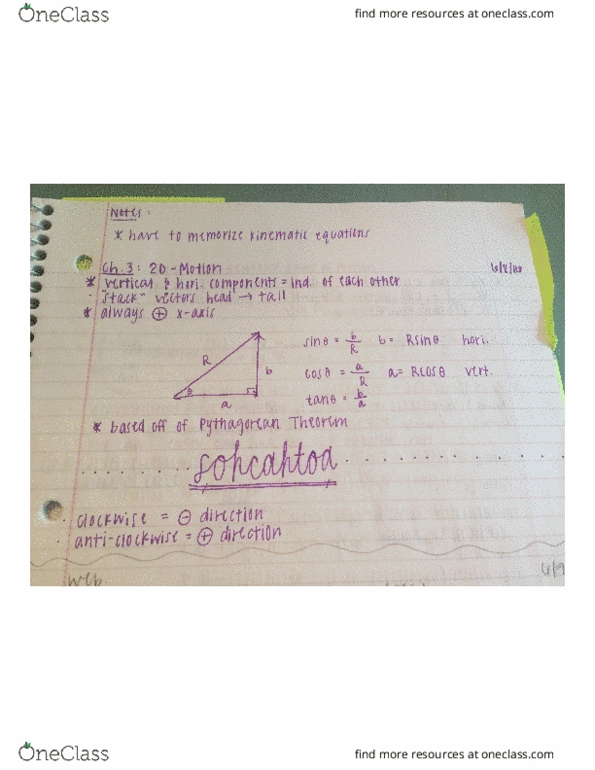 OneClass
find more resources at oneclass.com
Notes:
* have to memorize kinematic equations
Ch. 3: 2D - Motion
* vertical & hori. components = ind. of each other
· "stack" vectors head → tail
* always ⊕ x-axis
sinθ = b/R b = Rsinθ hori.
R
b
cosθ = a/R a= Rcosθ vert.
θ
a
tanθ = b/a
* based off of Pythagorean Theorem
sohcahtoa
· clockwise = ⊖ direction
· anti-clockwise = ⊕ direction
6/9
OneClass
find more resources at oneclass.com